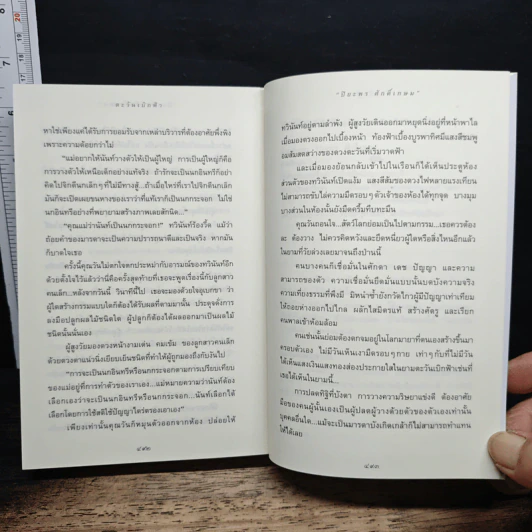 ตะวันเบิกฟ้า
หาใช่เพียงแค่ได้รับการยอมรับจากเหล่าบริวารที่ต้องอาศัยพึ่งพิง
เพราะความด้อยกว่าไม่"
"แม่อยากให้นันท์วางตัวให้เป็นผู้ใหญ่ การเป็นผู้ใหญ่ก็คือ
การวางตัวให้เหนือเด็กอย่างแท้จริง ถ้ารักจะเป็นนกอินทรีก็อย่า
คิดไปจิกตีนกเล็กๆ ที่ไม่มีทางสู้...ถ้าเมื่อไหร่ที่เราไปจิกตีนกเล็ก
มันก็จะเปิดเผยขนหางของเราว่าที่แท้เราก็เป็นนกกระจอก ไม่ใช่
นกอินทรีอย่างที่พยายามสร้างภาพเลยสักนิด..."
"คุณแม่ว่านันท์เป็นนกกระจอก!" ทวินันท์ร้องวี้ด แม้ว่า
ถ้อยคำของมารดาจะเป็นความปรารถนาดีและเป็นจริง หากมัน
ก็บาดใจเธอ
ครั้งนี้คุณวันไม่ตกใจตกประหม่ากับอารมณ์ของทวินันท์อีก
ด้วยตั้งใจไว้แล้วว่านี่คือครั้งสุดท้ายที่เธอจะพูดเรื่องนี้กับลูกสาว
คนเล็ก...หลังจากวันนี้ วินาทีนี้ไป เธอจะมองด้วยใจอุเบกขา ว่า
ผู้ใดสร้างกรรมแบบใดก็ต้องได้รับผลที่ตามมานั้น ประดุจดั่งการ
ลงมือปลูกผลไม้ชนิดใด ผู้ปลูกก็ต้องได้ผลออกมาเป็นผลไม้
ชนิดนั้นนั่นเอง
ผู้สูงวัยมองดวงหน้างามเด่น คมเข้ม ของลูกสาวคนเล็ก
ด้วยดวงตาแน่วนิ่งเยือกเย็นชนิดที่ทำให้ผู้ถูกมองถึงกับงันไป
"การจะเป็นนกอินทรีหรือนกกระจอกตามการเปรียบเทียบ
ของแม่อยู่ที่การทำตัวของเราเอง...แม่หมายความว่านันท์ต้อง
เลือกเองว่าจะเป็นนกอินทรีหรือนกกระจอก...นันท์เลือกได้
เลือกโดยการใช้สติใช้ปัญญาไตร่ตรองเอาเอง"
เพียงเท่านั้นคุณวันก็หมุนตัวออกจากห้อง ปล่อยให้
๔๙๒
"ปิยะพร ศักดิ์เกษม"
ทวินันท์อยู่ตามลำพัง ผู้สูงวัยเดินออกมาหยุดนิ่งอยู่ที่หน้าพาไล
เมื่อมองตรงออกไปเบื้องหน้า ท้องฟ้าเบื้องบูรพาทิศมีแสงสีชมพู
อมส้มสดสว่างของดวงตะวันที่เริ่มวาดฟ้า
และเมื่อมองย้อนกลับเข้าไปในเรือนก็ได้เห็นประตูห้อง
ส่วนตัวของทวินันท์เปิดแง้ม แสงสีส้มของดวงไฟหลายแรงเทียน
ไม่สามารถขับไล่ความมืดรอบๆ ตัวเจ้าของห้องได้ทุกจุด บางมุม
บางส่วนในห้องนั้นยังมืดครึ้มทึบทะมึน
คุณวันถอนใจ...สัตว์โลกย่อมเป็นไปตามกรรม...เธอควรต้อง
ละ ต้องวาง ไม่ควรคิดหวังและยึดเหนี่ยวผู้ใดหรือสิ่งไหนอีกแล้ว
ในยามที่วัยล่วงเลยมาจนถึงป่านนี้
คนบางคนก็เชื่อมั่นในศักดา เดช ปัญญา และความ
สามารถของตัว ความเชื่อมั่นยึดมั่นแบบนั้นบดบังความจริง
ความเที่ยงธรรมที่พึงมี มิหนำซ้ำยังกวัดไกวผู้มีปัญญาเท่าเทียม
ให้ถอยห่างออกไปไกล ผลักไสมิตรแท้ สร้างศัตรู และเรียก
คนพาลเข้าห้อมล้อม
คนเช่นนั้นย่อมต้องตกอยู่ในโลกมายาที่ตนเองสร้างขึ้นมา
ครอบตัวเอง ไม่มีวันเห็นเงามืดรอบๆ กาย เท่าๆ กับที่ไม่มีวัน
ได้เห็นแสงเงินแสงทองส่องประกายไสวในยามตะวันเบิกฟ้าเช่นที่
เธอได้เห็นในยามนี้...
การปลดทิฐิที่บังตา การวางความริษยาแข่งดี ต้องอาศัย
มือของคนผู้นั้นเองเป็นผู้ปลดผู้วางด้วยตัวของตัวเองเท่านั้น
บุคคลอื่นใด...แม้จะเป็นมารดาบังเกิดเกล้าก็ไม่สามารถทำแทน
ให้ได้เลย
๔๙๓